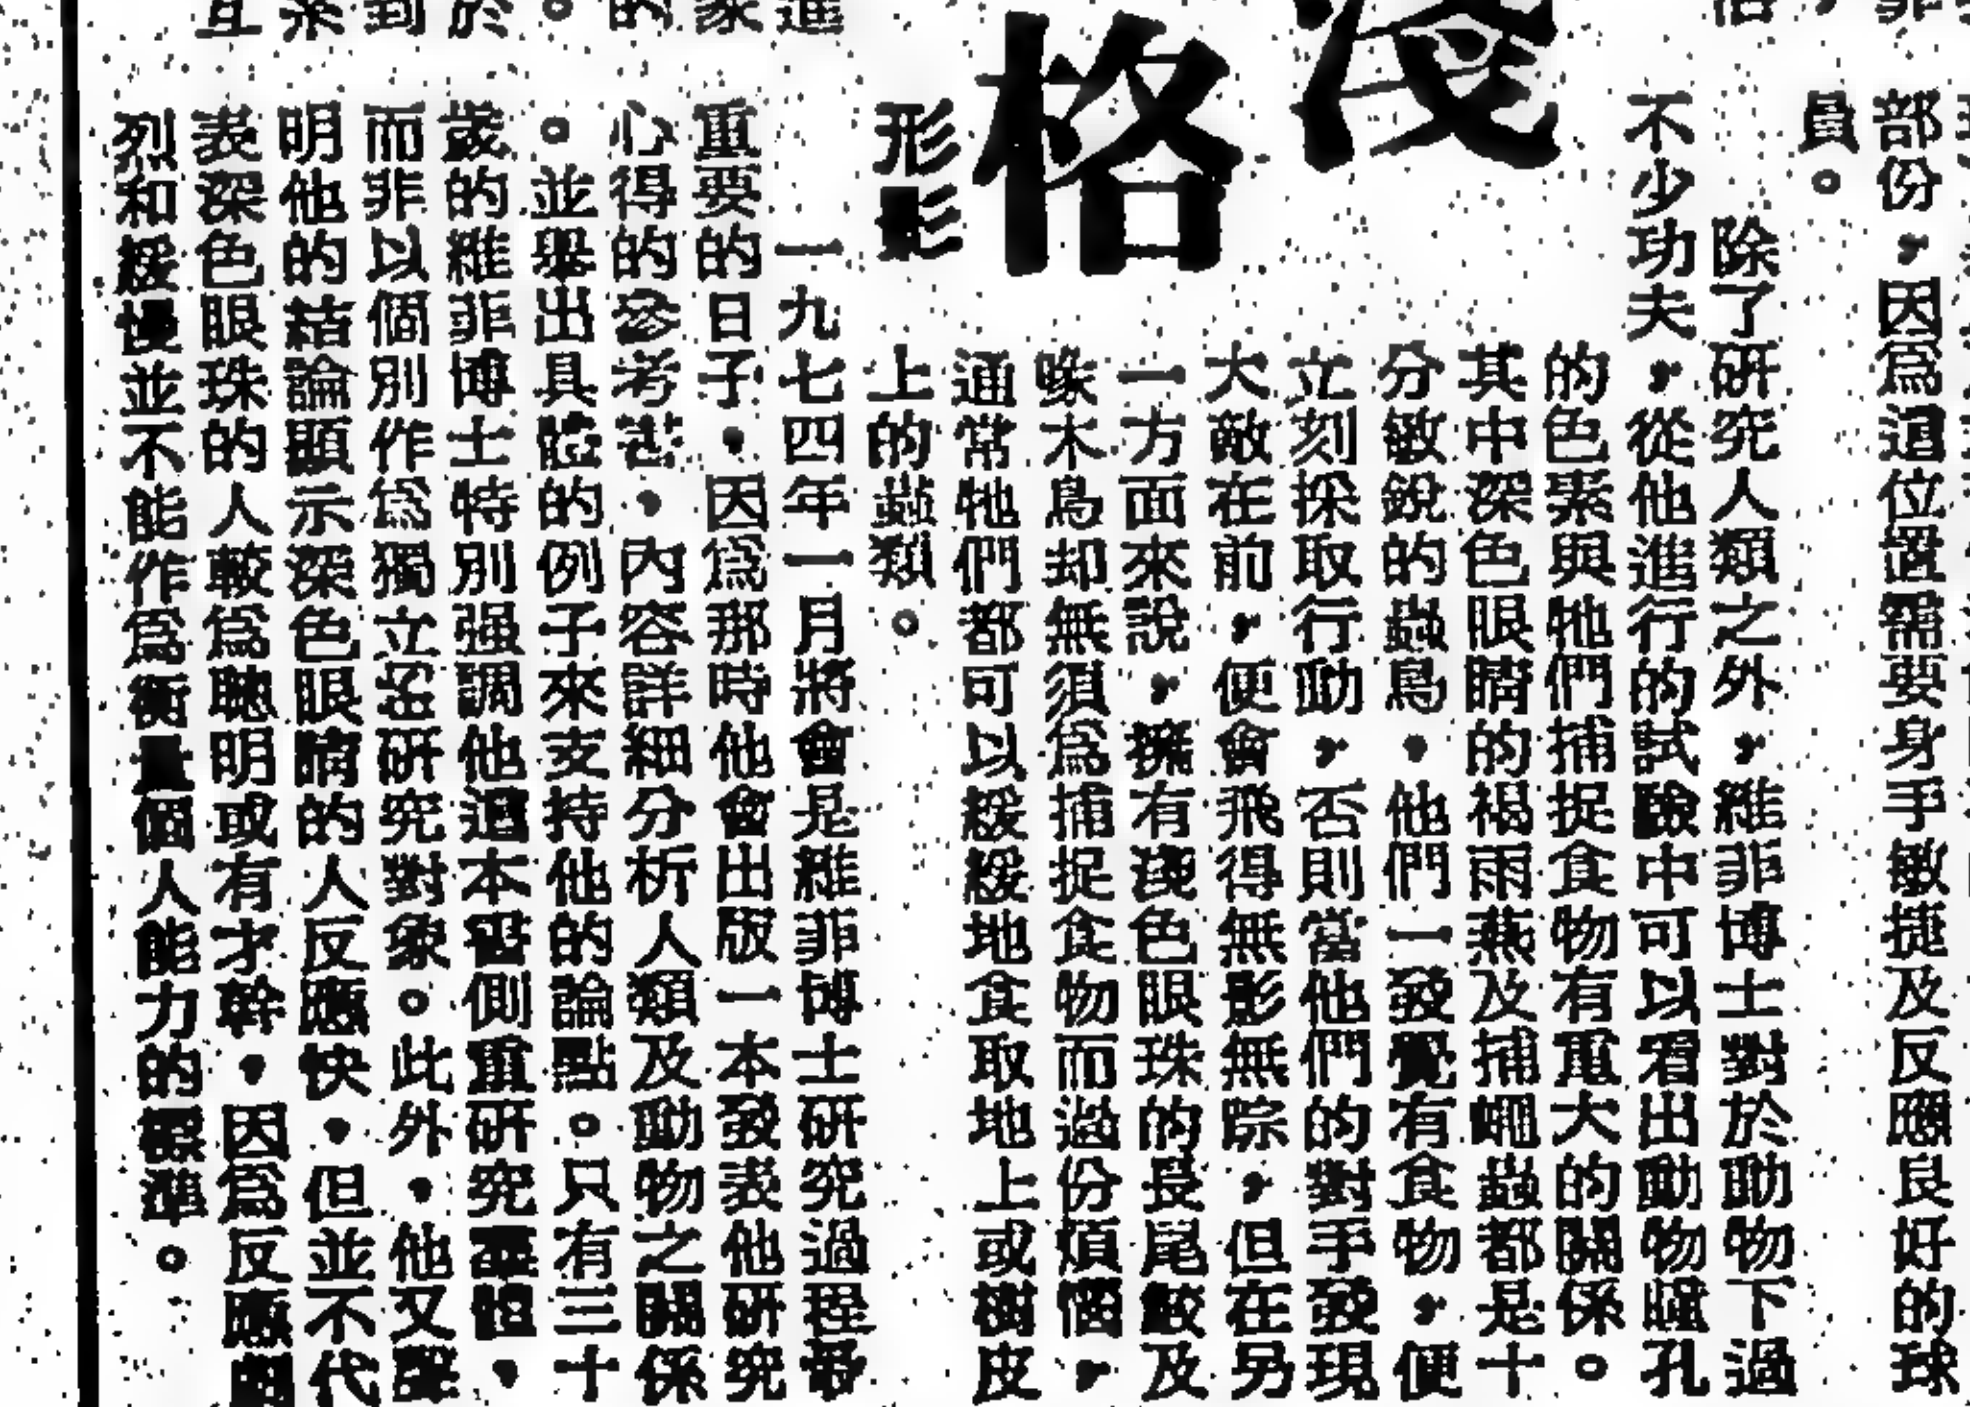 部份，因爲這位置需要身手敏捷及反應良好的球
員。
除了研究人類之外，維菲博士對於動物下過
不少功夫，從他進行的試驗中可以看出動物瞳孔
的色素與牠們捕捉食物有重大的關係。
其中深色眼睛的褐雨燕及捕蠅蟲都是十
分敏銳的蟲鳥，他們一發覺有食物，便
立刻採取行動，否則當他們的對手發現
大敵在前，便會飛得無影無踪，但在另
一方面來說，擁有淺色眼珠的長尾鮫及
啄木鳥却無須爲捕捉食物而過份煩惱，
通常牠們都可以緩緩地食取地上或樹皮
上的蟲類。
淺
格
形影
一九七四年一月將會是維菲博士研究過程最
重要的日子，因爲那時他會出版一本發表他研究
心得的參考書，內容詳細分析人類及動物之關係
。並舉出具體的例子來支持他的論點。只有三十
歲的維菲博士特別强調他這本書側重研究羣體，
而非以個別作爲獨立研究對象。此外，他又
明他的結論顯示深色眼睛的人反應快，但並不代
表深色眼珠的人較爲聰明或有才幹，因爲反應
烈和緩慢並不能作爲衡量個人能力的標準。